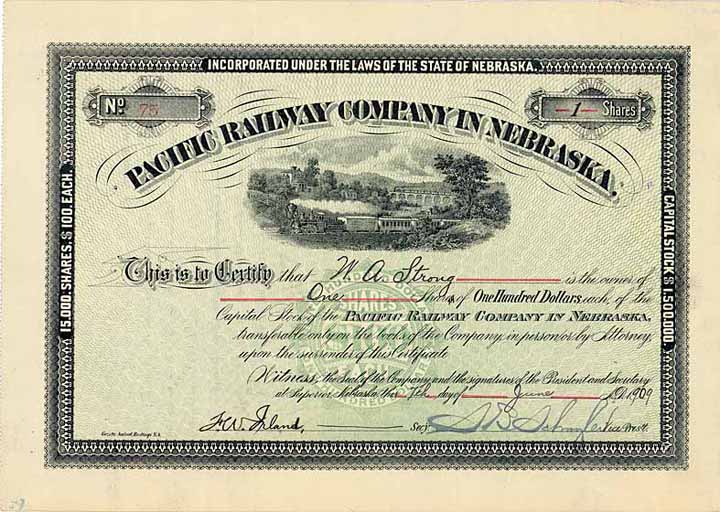 INCORPORATED UNDER THE LAWS OF THE STATE OF NEBRASKA.
No 75
-1- Shares
PACIFIC RAILWAY COMPANY IN NEBRASKA.
15,000, SHARES, $100, EACH.
CAPITAL STOCK $1,500,000.
This is to Certify that W. A. Strong is the owner of
One Shares of One Hundred Dollars each, of the
Capital Stock of the PACIFIC RAILWAY COMPANY IN NEBRASKA,
transferable only on the books of the Company, in person or by Attorney,
upon the surrender of this Certificate
SHARES
Witness, the seal of the Company and the signatures of the President and Secretary
at Superior, Nebraska this 7th day of June A.D. 1909
Sec'y
Vice Prest.